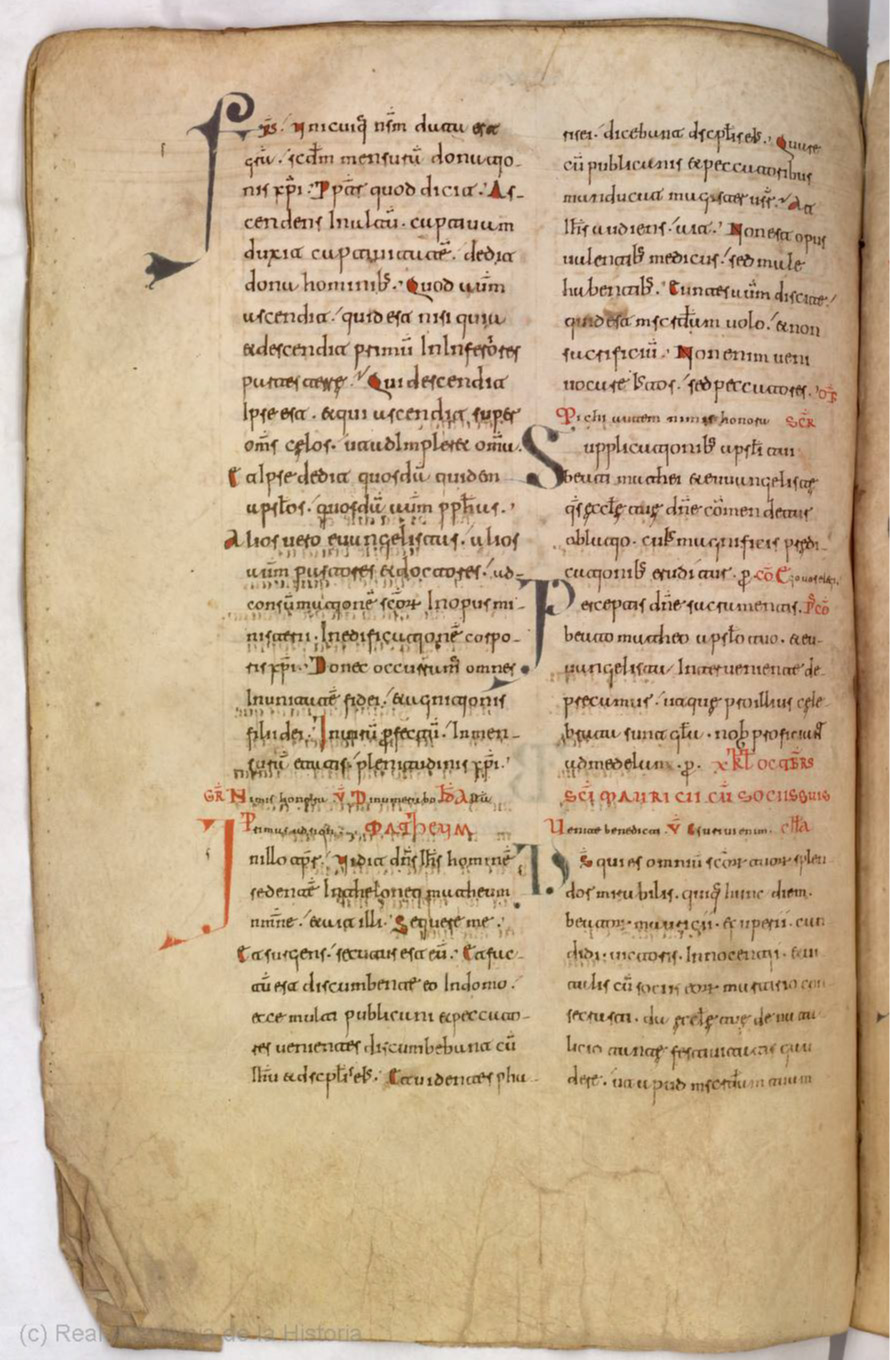 Frs. Unicuiq; nr̄m data est
gr̄a. scdm mensurā donatio-
nis xp̄i. Propt̄ quod dicit. As-
cendens In altū. captiuam
duxit captiuitatē. dedit
dona hominib;. Quod aūm
ascendit. quid est nisi quia
& descendit primū In Inferiores
partes terre. Qui descendit
Ipse est. & qui ascendit super
om̄s celos. ut adImpleret omīa.
Et Ipse dedit quosdā quidem
apsl̄os. quosdā aūm pph̄as.
Alios uero euangelistas. alios
aūm pastores & doctores. ad
consūmationē scōr In opus mi-
nisterii. In edificationē corpo-
ris xp̄i. Donec occurram̄ omnes
In unitatē fidei. & agnitionis
filii dei. In uirū perfectū. In men-
surā etatis plenitudinis xp̄i.
GR Nimis honorati V̄ Dinumerabo
MATHEUM
In illo tp̄r. Uidit dn̄s Ih̄s hominē
sedentē In theloneo matheum
nomne. & ait illi. Sequere me.
Et surgens. secutus est eū. Et fac-
tū est discumbente eo In domo.
ecce multi publicani & peccato-
res uenientes discumbebant cū
Ih̄u & discipl̄is eb;. Et uidentes pha-
risei. dicebant discpl̄is eb;. Quare
cū publicanis & peccatoribus
manducat magister uēr. At
Ih̄s audiens. ait. Non est opus
ualentib; medicus. sed male
habentib;. Euntes aūm discite.
quid est mscdiam uolo. & non
sacrificiū. Non enim ueni
uocare Istos. sed peccatores. OF
Michi autem nimis honora SCR
Supplicationib; apsl̄i tui
beati mathei & euuangeliste
qs eccle tue dn̄e cōmendetur
oblatio. cuIs magnificis predi-
cationib; eruditur. p. CO
Perceptis dn̄e sacramentis. PCO
beato matheo apsl̄o tuo. & eu-
uangelista Interueniente de-
precamur. ut que pro illius cele-
britate sunt gl̄a. nob; proficiant
ad medelam. p. X KL OCTBRS
SCI MAURICII CU SOCIIS SUIS
Uenite benedicti. V̄ Esuriui enim.
Ds qui es omniū scōr tuor splen
dor mirabilis. quiq; hunc diem.
beator mauricii. exuperii. can
didi. uictoris. Innocentii. &
talis cū sociis eor martirio con
secrasti. da eccle tue de na ta
licio tante festiuitatis gau
dere. ut apud mscdiam tuam